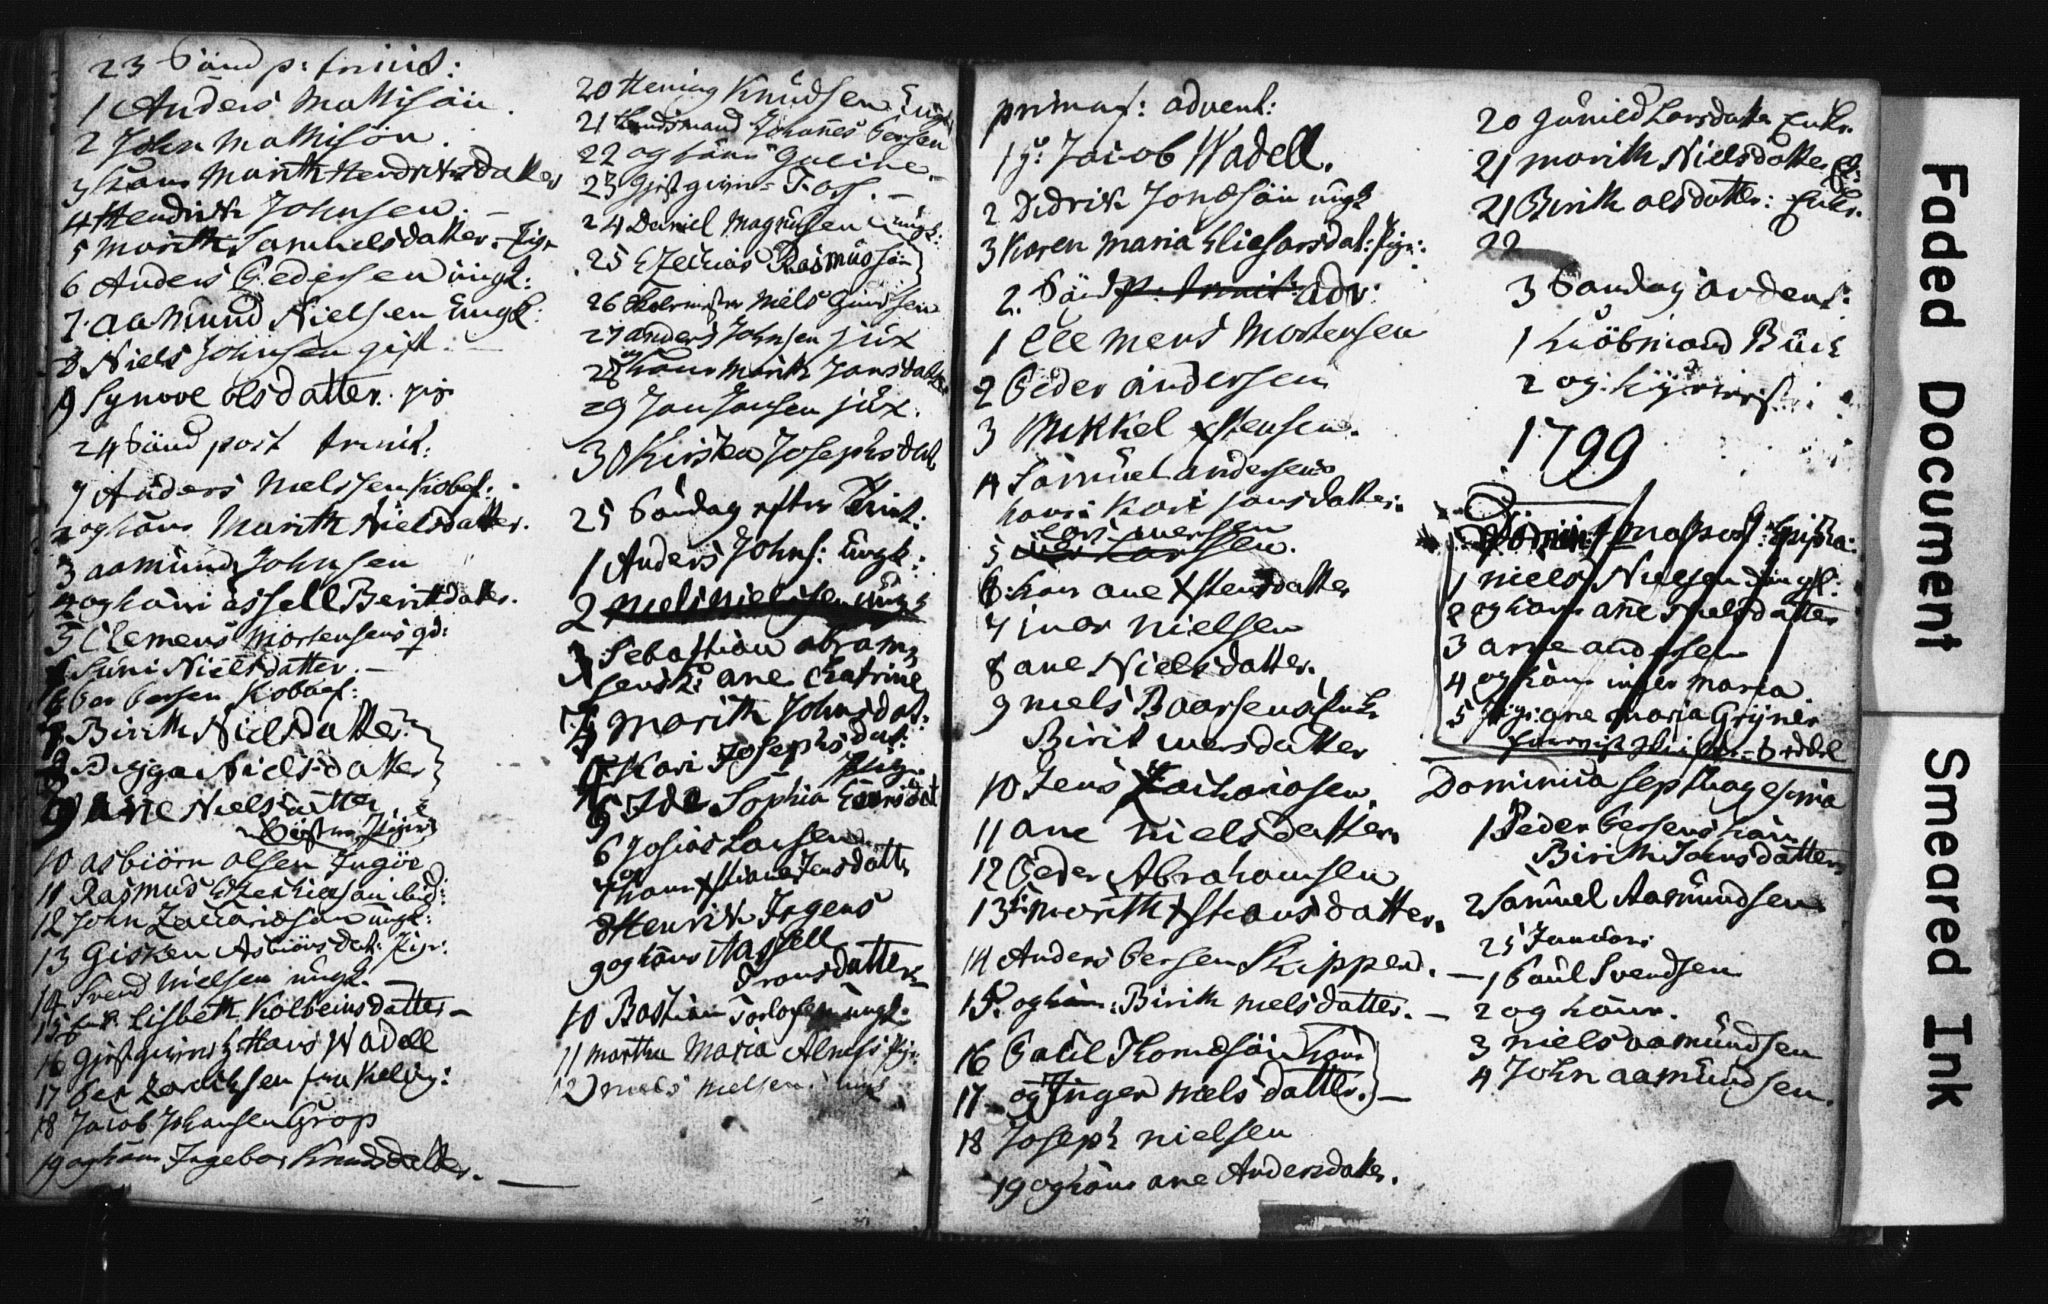 23 Sönd p: trinit:
1 Anders Mattisön
2 John Mattisön
3 hans Marith Hendrichsdatter
4 Hendrich Johnsen
5 Marith Samuelsdatter Pige
6 Anders Pedersen ungk:
7 Aamund Nielsen Ungk:
8 Niels Johnsen gift
9 Synove olsdatter pig
24 Sönd post trinit:
1 Anders Nielssen Kobef:
2 og hans Marith Nielsdatter
3 aamund Johnsen
4 og hans assell Beritdatter
5 Clemens Mortensens
Siini Nielsdatter
6 Per Persen Kobbef:
7 Birith Nielsdatter
8 Bugga Nielsdatter
9 Ane Nielsdatter
10 asbiörn olsen
11 Rasmus Ezechiesön
12 John Zacariasön ungk:
13 Gisken Asbiörsdat: Pige:
14 Svend Nielsen ungk.
15 Enk Lisbeth Kolbeinsdatter
16 Giestgiver Hans Wadell
17 Per Zachsen fra
18 Jacob Johansen Grop
19 og hans Ingebor Knudsdatter
20 Hening Knudsen Ungk
21 Lendsmand Johanes Persen
22 og hans Guline
23 Giestgiver Foss
24 Daniel Magnusen ungk:
25 Ezechias Rasmussön
26 Niels Gundersen
27 anders Johnsen jux
28 og hans Marith Jonsdatter
29 Jon Jonsen jux.
30 Kirsten Josephsdat
25 Söndag efter Trinit:
1 Anders Johns: ungk:
2 niels nielsen ungk
3 Sebastian abram
sens K: ane Chatrine
4 Marith Johnsdat:
Kari Josephsdat:
Pige
Ide Sophia
6 Josias Larsen
7 og hans Xstiana Jensdatter
8 Henrich Irgens
9 og hans Assell
Tronsdatter
10 Bastian ungk:
11 martha Maria Pige
12 niels nielsen ungk
primas: advent:
1 Jacob Wadell.
2 Didrich Jonesön ungk
3 Karen Maria Eliesarsdat: Pige:
2. Sönd p. trinit: adv:
1 Clemens Mortensen
2 Peder andersen
3 Mikkel Xstensen.
4 Samuel andersens
hans Kari jonsdatter
lars iversen
5 iver larssen.
6 hans ane Xstensdatter
7 iver nielsen
8 ane Nielsdatter.
9 niels Baarsens Enke
Birit iversdatter
10 Jens Zachariasen
11 ane nielsdatter
12 Peder Abrahamsen
13 Marith Xstiansdatter.
14 Anders Persen Skipper.
15 og hans: Birith nielsdatter.
16 Paul Thomesön
17 og Inger nielsdatter.
18 Joseph nielsen
19 og hans ane Andersdatter.
20 Gunild Larsdatter Enke.
21 marith Nielsdatter
21 Birith olsdatter: Enke.
22
3 Söndag i advent:
1 kiöbmand Buck
2 og
1799
Domin: post: Epipha:
1 niels Nielsen ungk:
2 og hans ane Nielsdatter
3 arne andersen
4 og hans inger maria
5 Pige: ane maria Gryner
Dominica Septuagesima
1 Peder Persens hans
Birith Johnsdatter
2 Samuel Aasmundsen
25 Januari
1 Paul Svendsen
2 og hans.
3 niels aamundsen
4 John aamundsen.
Faded Document
Smeared Ink